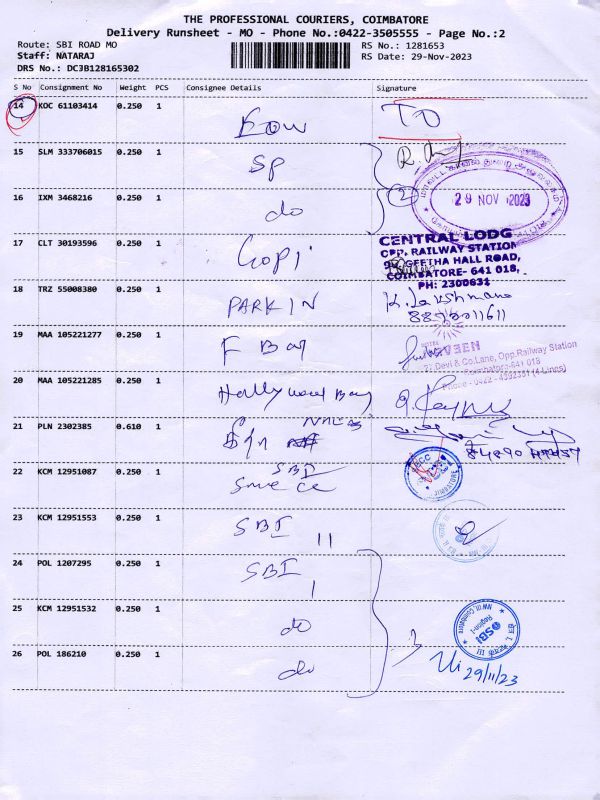 THE PROFESSIONAL COURIERS, COIMBATORE
Delivery Runsheet - MO - Phone No.:0422-3505555 - Page No.:2
Route: SBI ROAD MO
RS No.: 1281653
Staff: NATARAJ
RS Date: 29-Nov-2023
DRS No.: DCJB128165302
S No Consignment No Weight PCS Consignee Details Signature
14 KOC 61103414 0.250 1
TD
15 SLM 333706015 0.250 1
SP
16 IXM 3468216 0.250 1
do
2
29 NOV 2023
17 CLT 30193596 0.250 1
Gopi
CENTRAL LODG
OPP. RAILWAY STATION
GEETHA HALL ROAD,
COIMBATORE- 641 018,
PH: 2300631
18 TRZ 55008380 0.250 1
PARKIN
K. Lakshmana
19 MAA 105221277 0.250 1
F Bay
Devi & Co.Lane, Opp.Railway Station
Coimbatore-641 018
Phone - 0422 - 4392351 (4 Lines)
20 MAA 105221285 0.250 1
Hollywood Bay
21 PLN 2302385 0.610 1
22 KCM 12951087 0.250 1
SBI
COIMBATORE
23 KCM 12951553 0.250 1
SBI II
24 POL 1207295 0.250 1
SBI I
25 KCM 12951532 0.250 1
do
SBI
Region-I
26 POL 186210 0.250 1
do
3
29/11/23